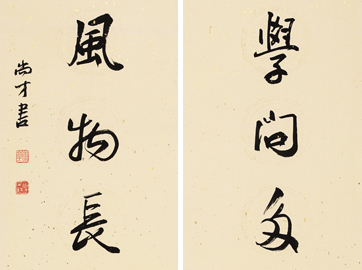 學問多
風物長
尚才書